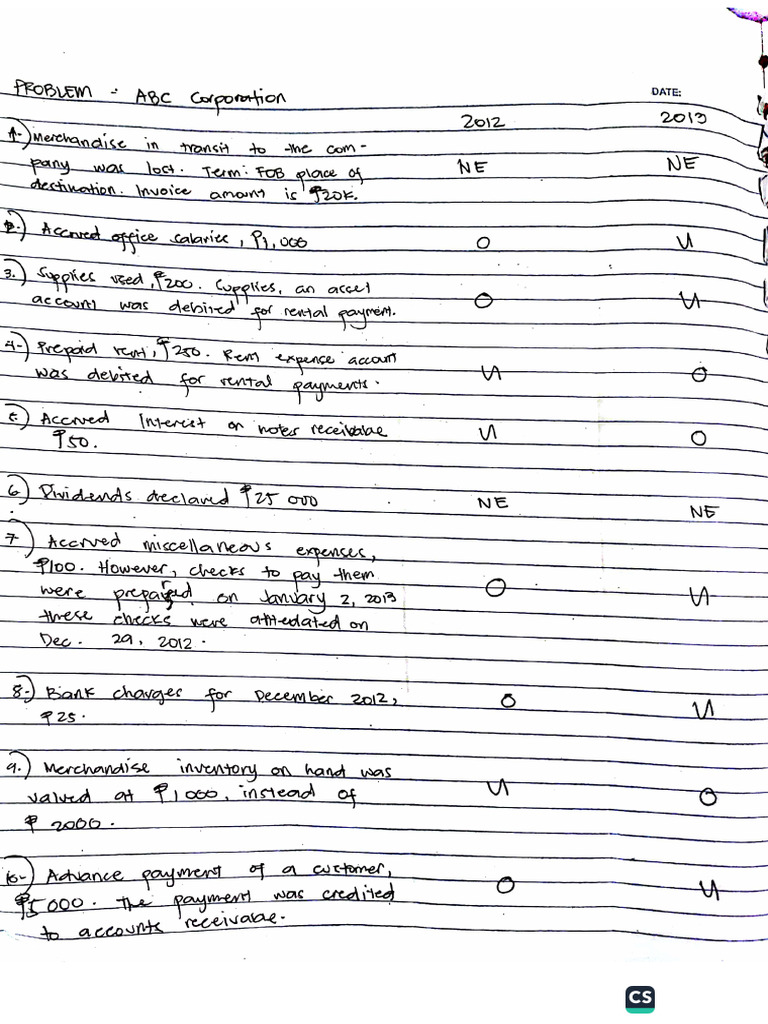 DATE:
PROBLEM - ABC Corporation
2012 2013
1.) Merchandise in transit to the com-
pany was lost. Term: FOB place of NE NE
destination. Invoice amount is ₱20K.
2.) Accrued office salaries, ₱1,000 O U
3.) Supplies used, ₱200. Supplies, an asset
account was debited for rental payment. O U
4.) Prepaid rent, ₱250. Rent expense account
was debited for rental payments. U O
5.) Accrued Interest on notes receivable U O
₱50.
6.) Dividends declared ₱25 000 NE NE
7.) Accrued miscellaneous expenses,
₱100. However, checks to pay them
were prepared on January 2, 2013 O U
these checks were on
Dec. 29, 2012.
8.) Bank charges for December 2012, O U
₱25.
9.) Merchandise inventory on hand was
valued at ₱1 000, instead of U O
₱ 2000.
10.) Advance payment of a customer, O U
₱5 000. The payment was credited
to accounts receivable.
CS